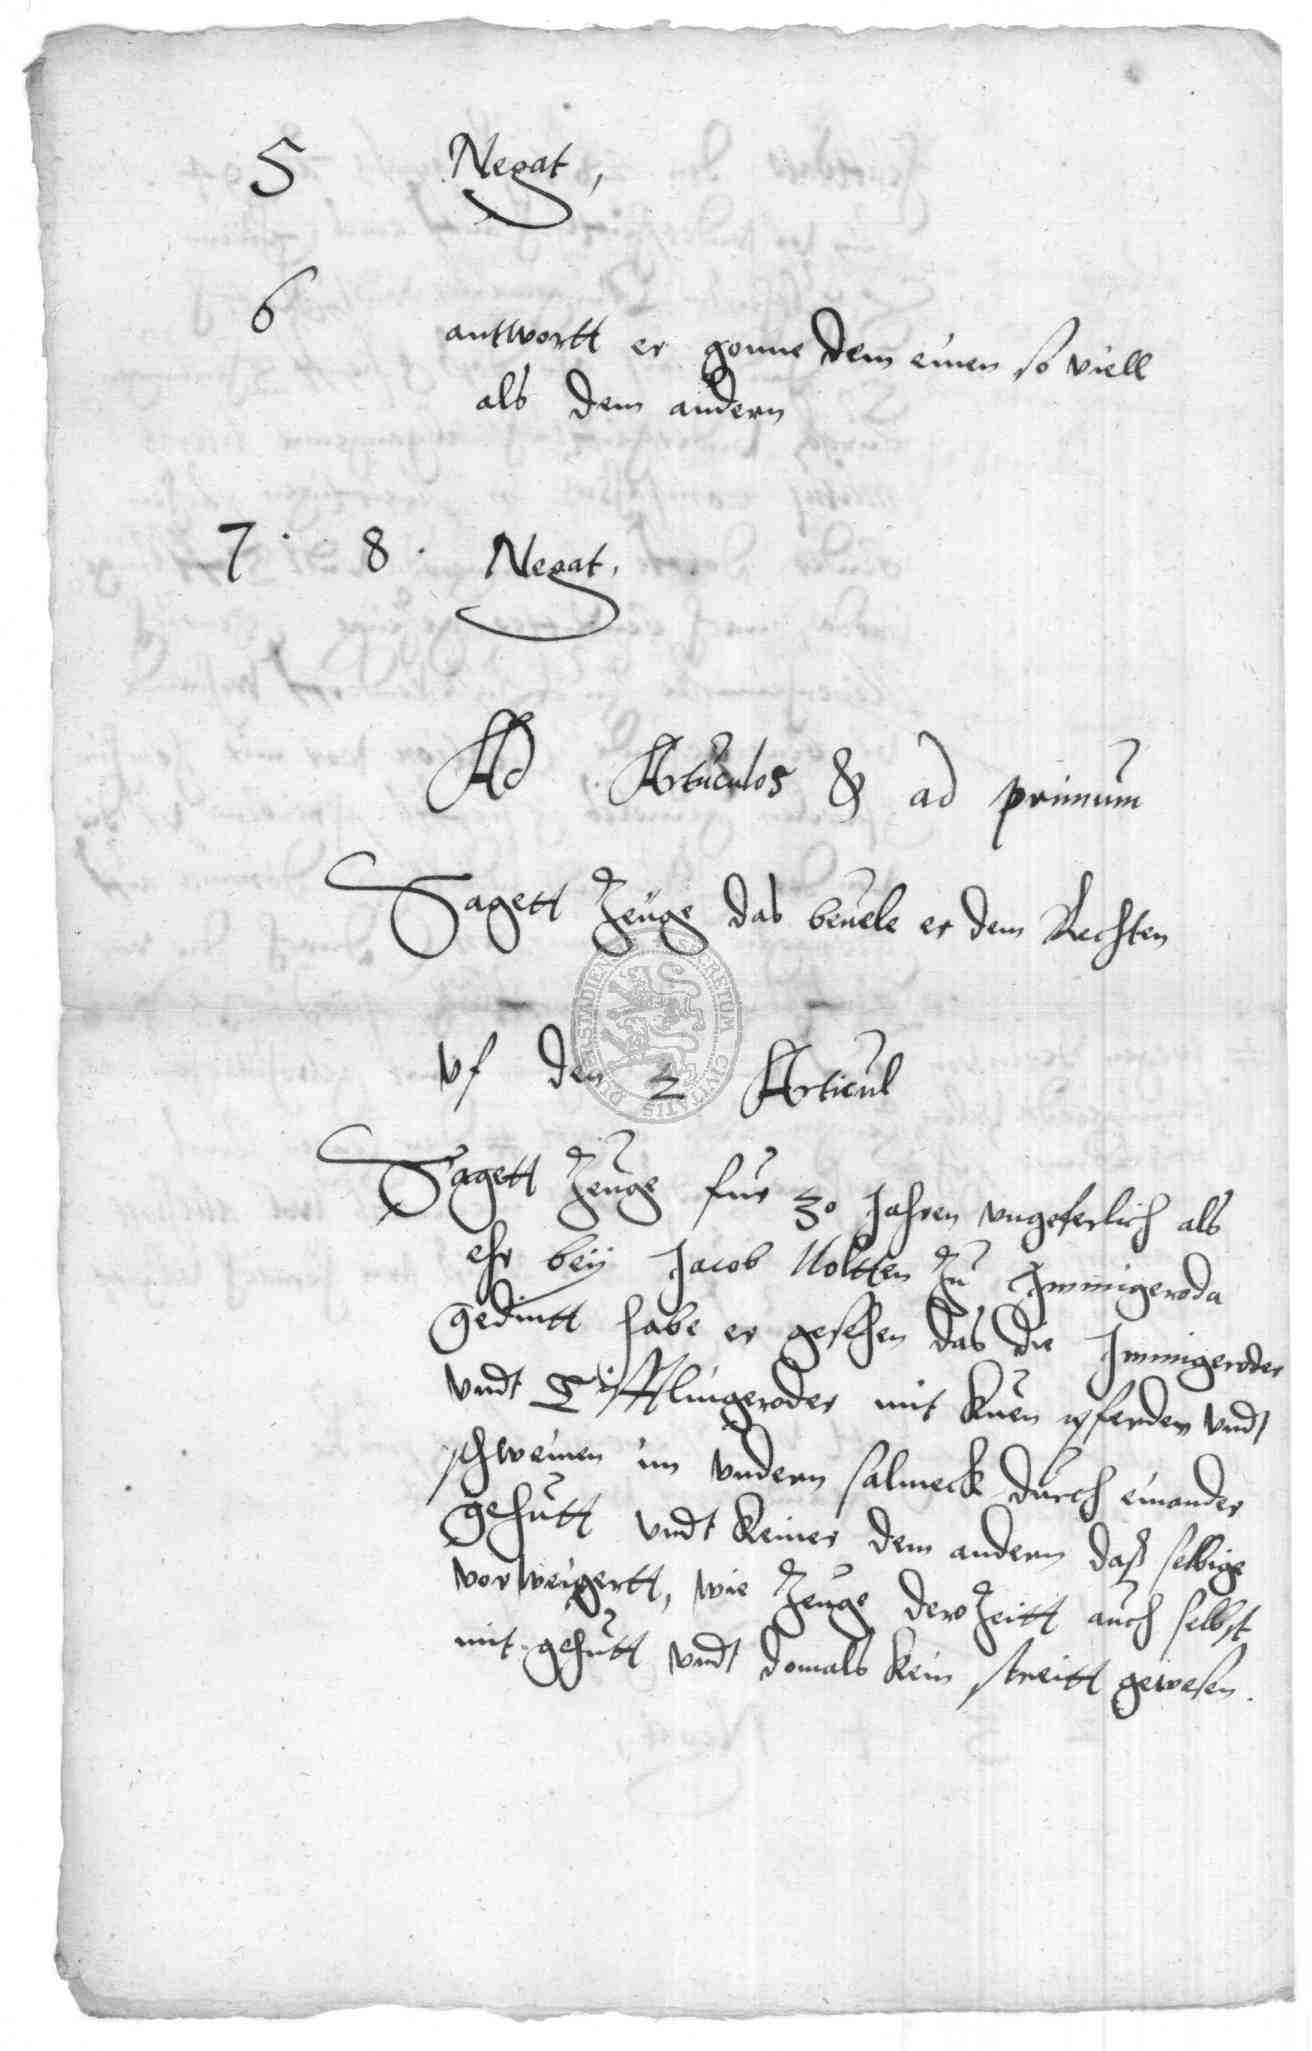 5 Negat,
6
antwortt er gonne dem einen so viell
als dem andern
7. 8. Negat,
Ad Articulos & ad primum
Sagett Zeuge das beuele er dem Rechten
vf den 2 Articul
Sagett Zeuge fur 30 Jahren vngeferlich als
ehr beÿ Jacob Noltten zu Immigeroda
gedintt habe er gesehen das die Immigeröder
vndt Tifftlingeroder mit kuen pferden vndt
schweinen im vndern salmeck durch einander
gehutt vndt keiner dem andern daß selbige
vorweigertt, wie Zeuge dero Zeitt auch selbst
mit gehutt vndt domals kein streitt gewesen.
SECRETUM CIVITATIS DUDERSTADIENSIS